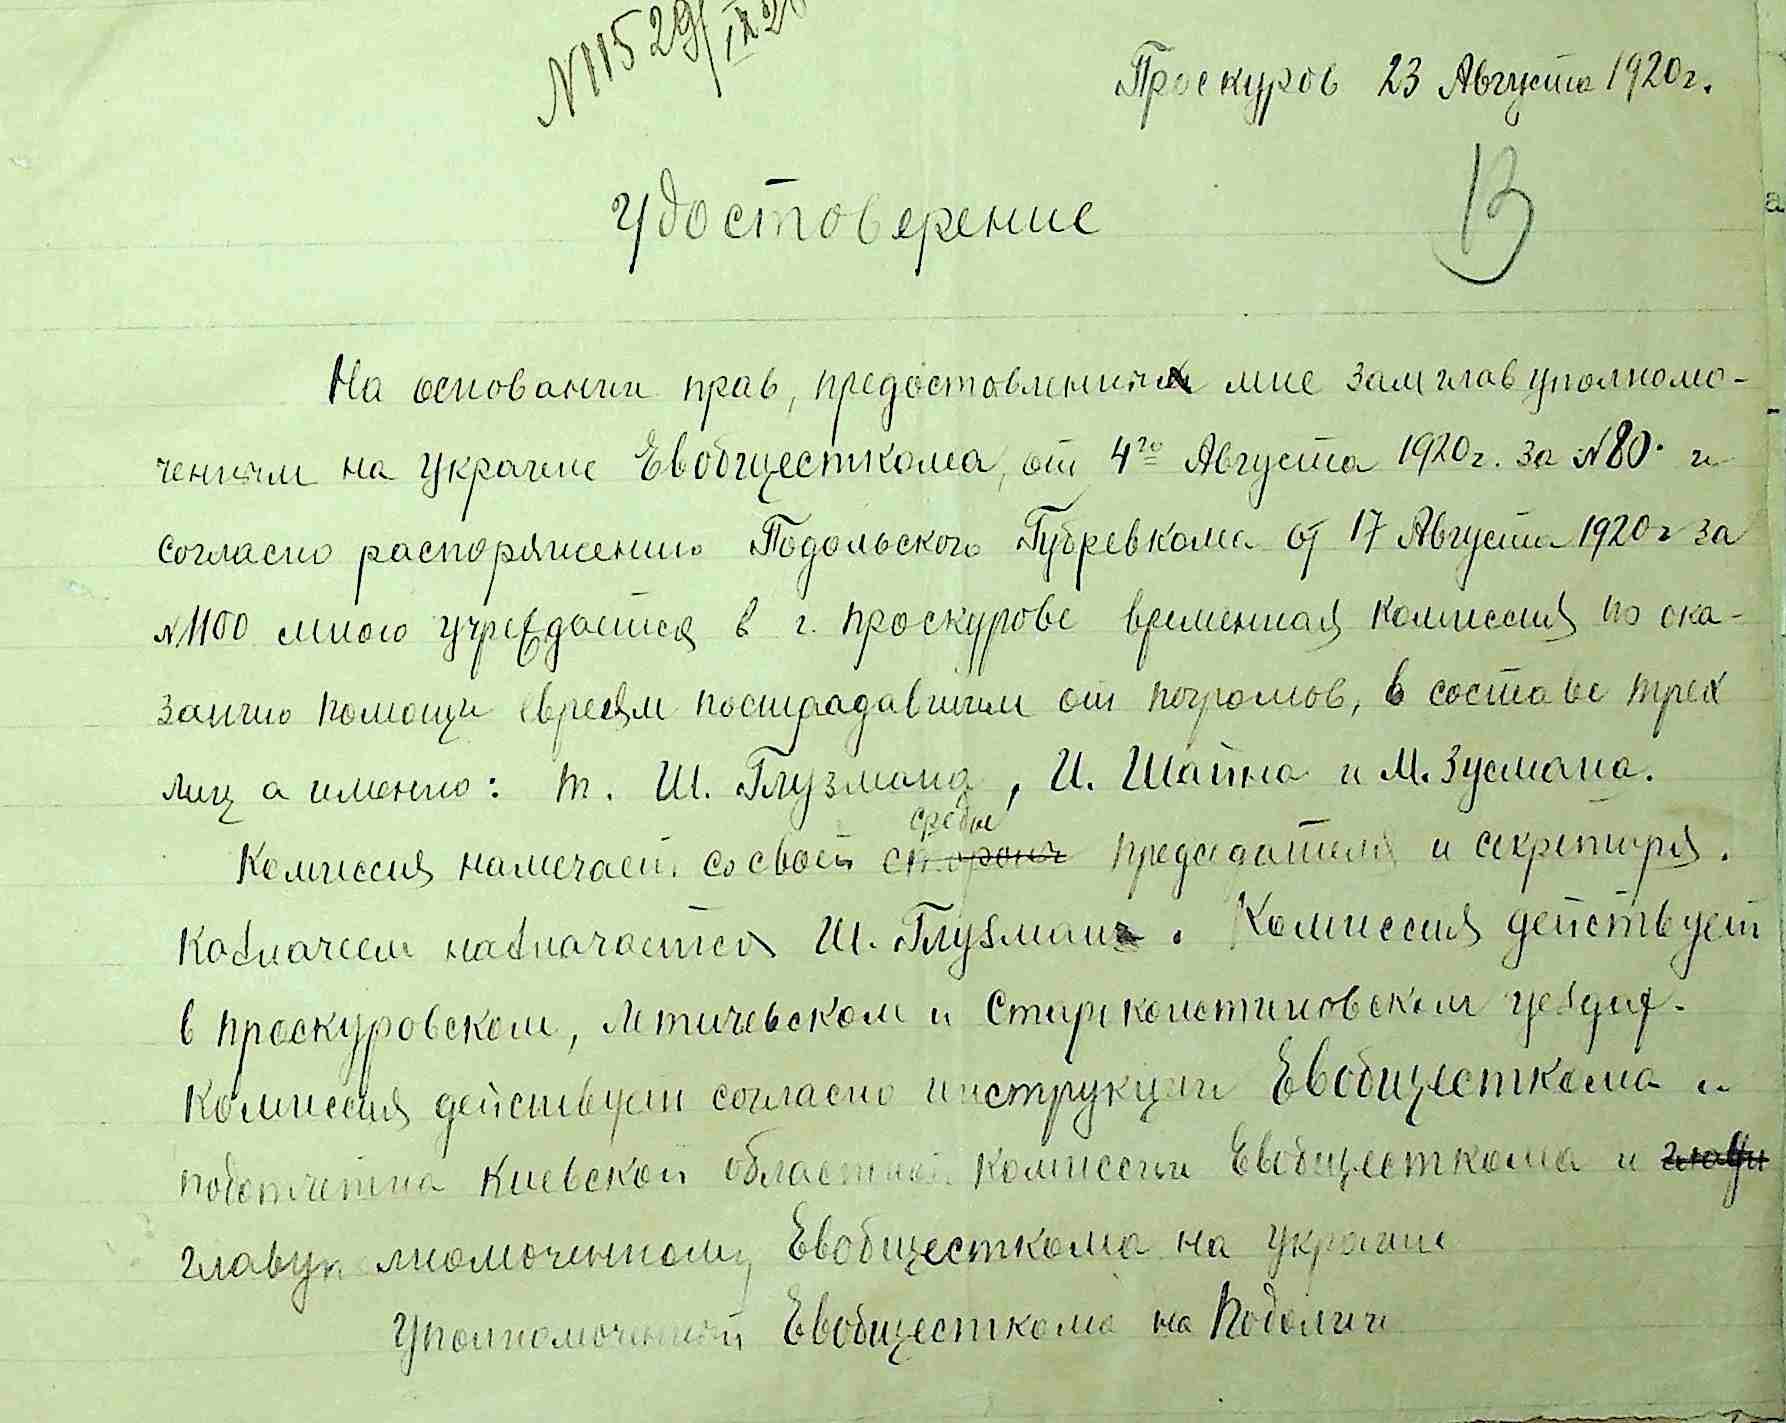 N 115 29/IX 20
Проскуров 23 Августа 1920 г.
13
Удостоверение
На основании прав, предоставленных мне замглавуполномо-
ченным на Украине Евобщесткома, от 4го Августа 1920 г. за N 80. и
согласно распоряжению Подольского Губревкома от 17 Августа 1920 г за
N 1100 мною учреждается в г. Проскурове временная комиссия по ока-
занию помощи евреям пострадавшим от погромов, в составе трех
лиц а именно: т. Ш. Глузмана, И. Шайна и М. Зусмана.
среды
Комиссия намечает со своей стороны председателя и секретаря.
Казначеем назначается Ш. Глузман. Комиссия действует
в Проскуровском, Летичевском и Староконстантиновском уездах.
Комиссия действует согласно инструкции Евобщесткома и
подотчетна Киевской областной комиссии Евобщесткома и
главуполномоченному Евобщесткома на Украине
Уполномоченный Евобщесткома на Подолии